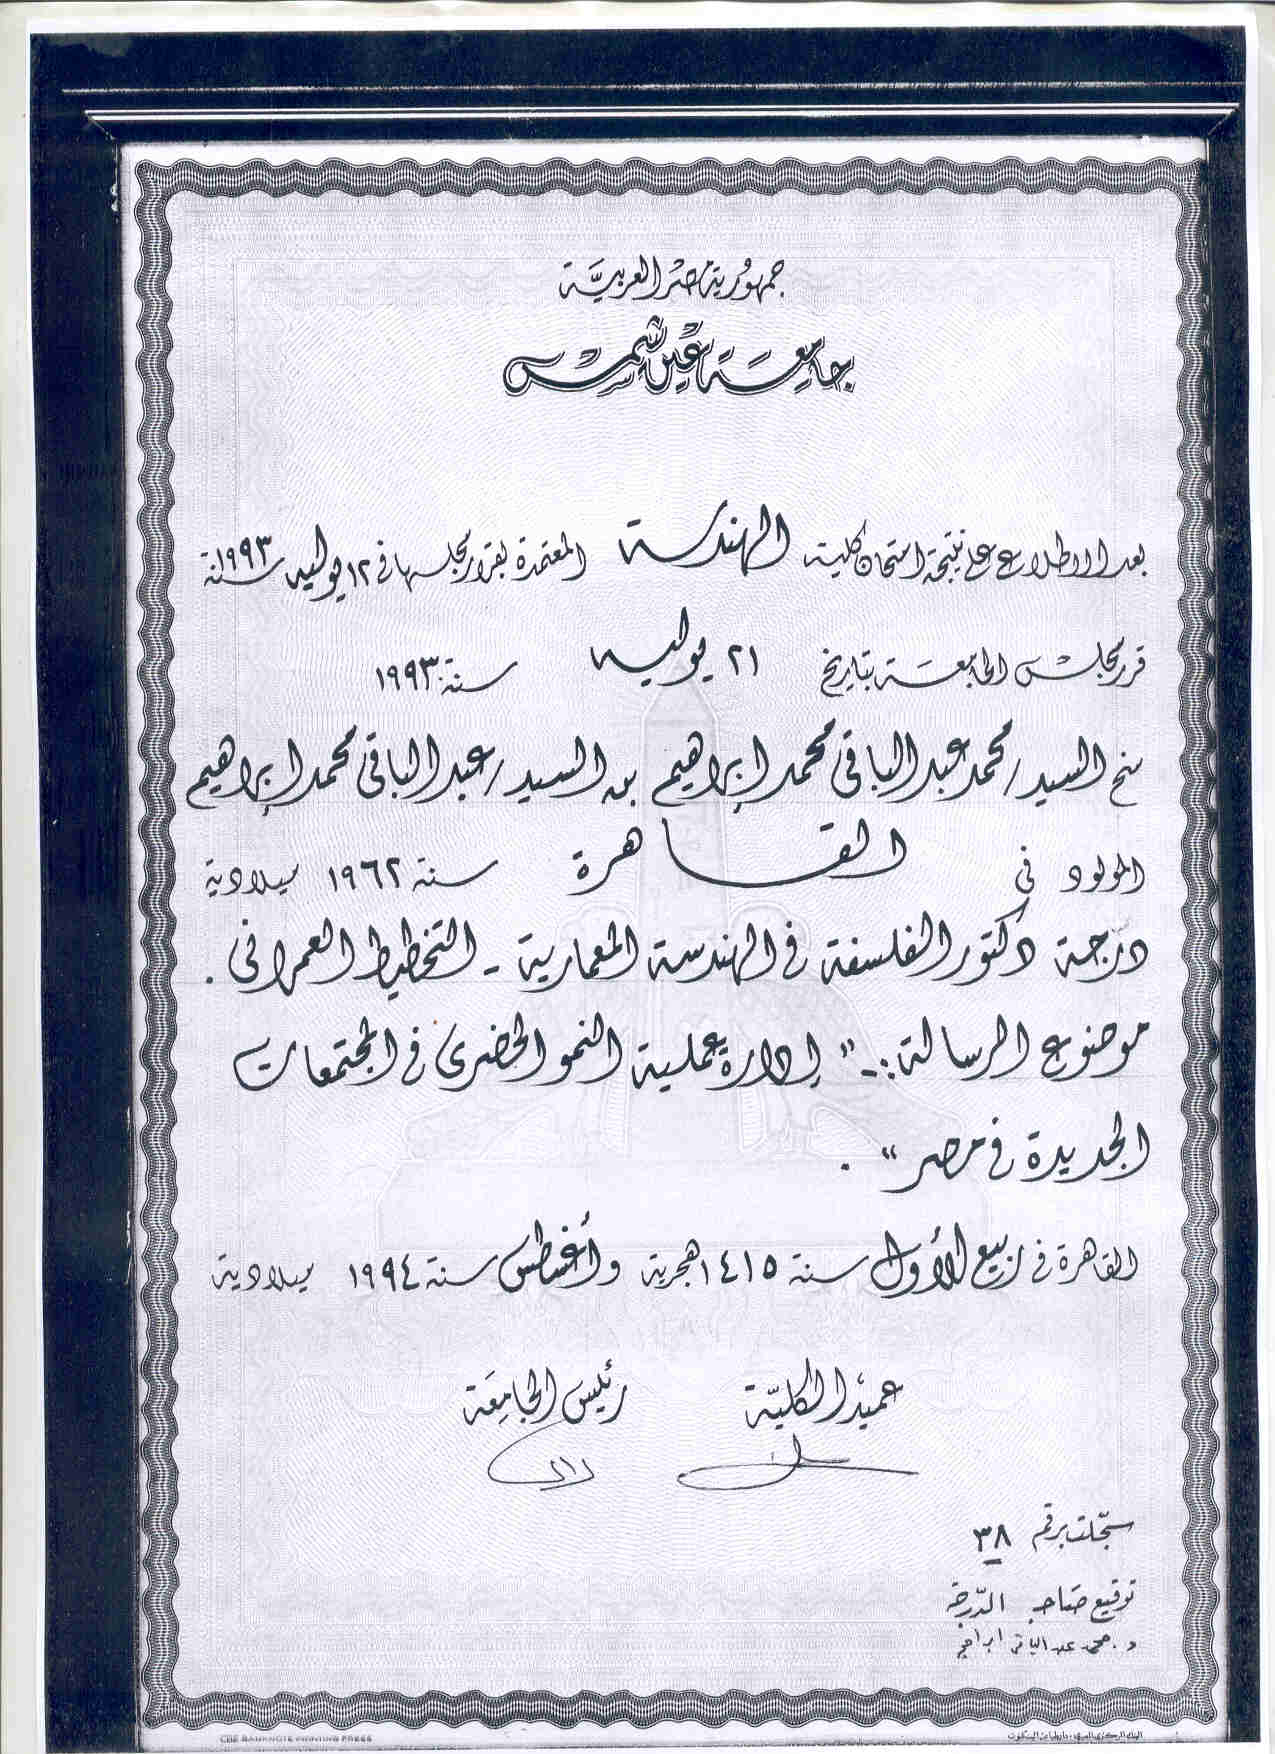 جمهورية مصر العربية
جامعة عين شمس
بعد الاطلاع على نتيجة امتحان كلية الهندسة المعتمدة بقرار مجلسها في ١٢ يوليه سنة ١٩٩٣
قرر مجلس الجامعة بتاريخ ٢١ يوليه سنة ١٩٩٣
منح السيد / محمد عبد الباقى محمد إبراهيم بن السيد / عبد الباقى محمد إبراهيم
المولود في القاهرة سنة ١٩٦٢ ميلادية
درجة دكتور الفلسفة في الهندسة المعمارية - التخطيط العمرانى .
موضوع الرسالة :- " إدارة عملية النمو الحضرى في المجتمعات
الجديدة في مصر " .
القاهرة في ربيع الأول سنة ١٤١٥ هجرية وأغسطس سنة ١٩٩٤ ميلادية
عميد الكلية رئيس الجامعة
سجلت برقم ٣٨
توقيع صاحب الدرجة
د. محمد عبد الباقى ابراهيم
CBE BANKNOTE PRINTING PRESS